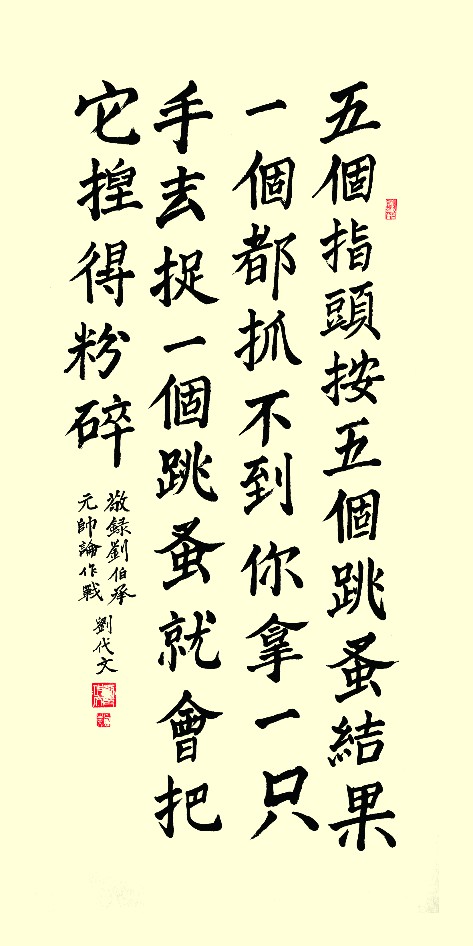 五個指頭按五個跳蚤結果
一個都抓不到你拿一只
手去捉一個跳蚤就會把
它揑得粉碎
敬録劉伯承
元帥論作戰
劉代文